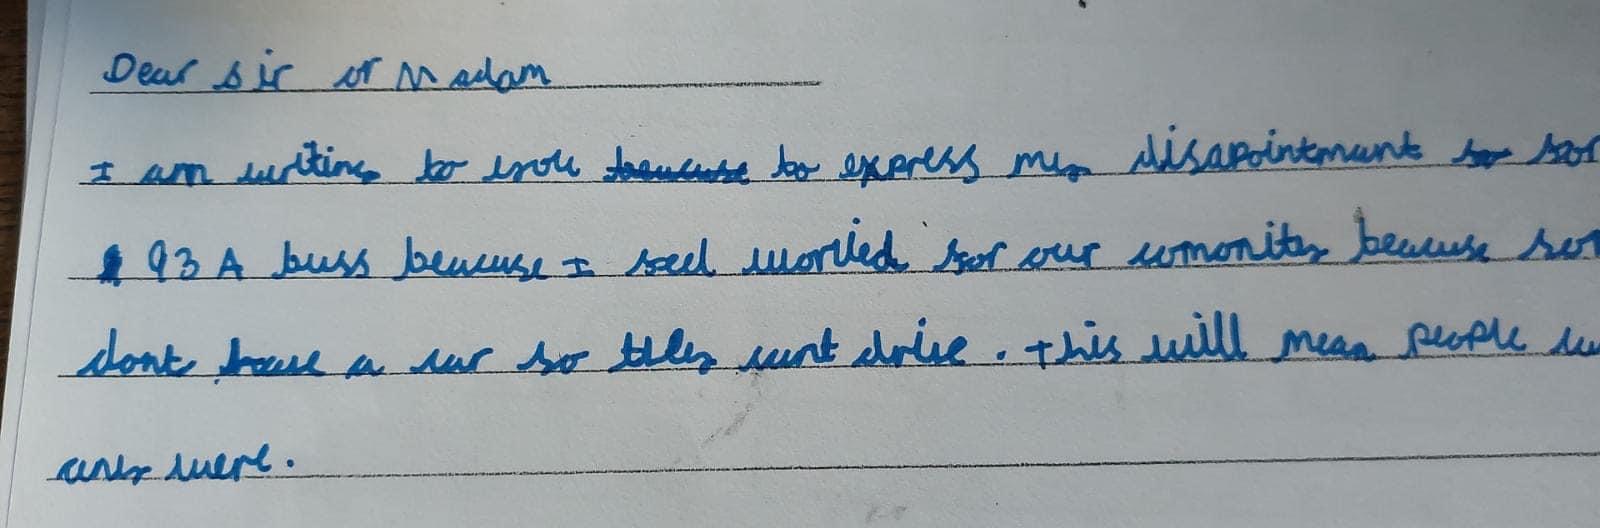 Dear sir or Madam
I am writing to you to express my disapointmant for
93 A buss because I feel worried for our comonity because
dont have a car so they cant drive. this will mean people
any were.